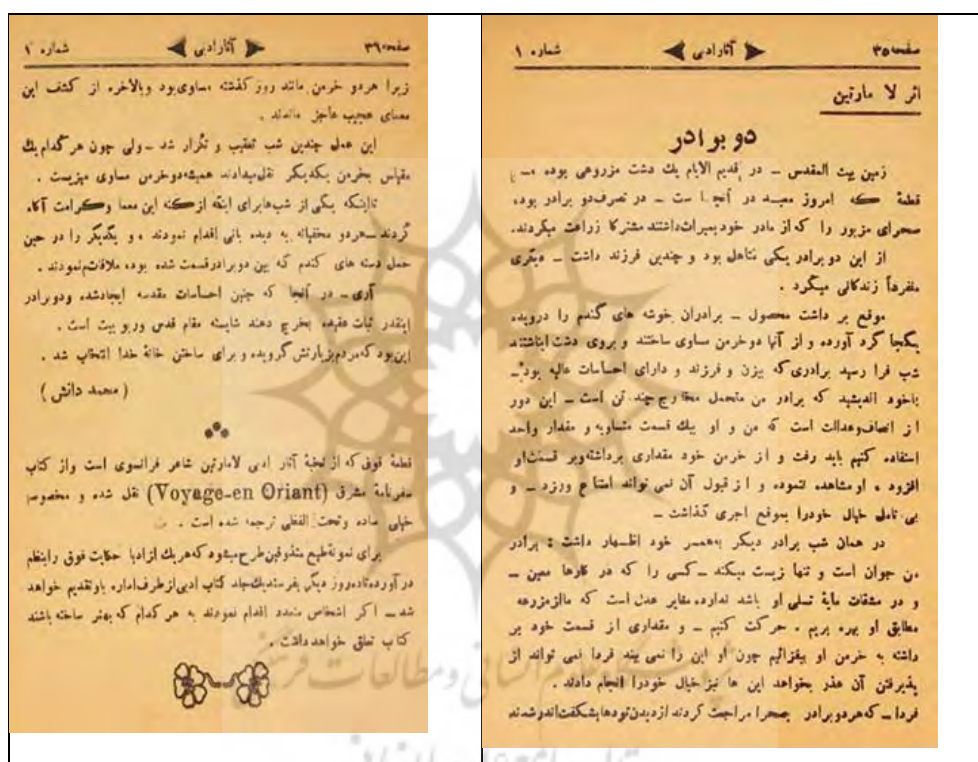 صفحه ۳۵
آثار ادبی
شماره ۱
اثر لا مارتین
دو برادر
زمین بیت المقدس ــ در قدیم الایام یك دشت مزروعی بوده ــ
قطعهٔ که امروز معبد در آنجا ست ــ در تصرف دو برادر بود،
صحرای مزبور را که از مادر خود بمیراث داشتند مشترکا زراعت میکردند.
از این دو برادر یکی متاهل بود و چندین فرزند داشت ــ دیگری
منفرداً زندگانی میکرد .
موقع بر داشت محصول ــ برادران خوشه های گندم را درویده
یکجا گرد آورده و از آنها دو خرمن مساوی ساختند و بروی دشت انباشتند
شب فرا رسید برادری که بیزن و فرزند و دارای احساسات عالیه بود ــ
باخود اندیشید که برادر من متحمل مخارج چند تن است ــ این دور
از انصاف وعدالت است که من و او بیك قسمت متساویه و مقدار واحد
استفاده کنیم باید رفت و از خرمن خود مقداری برداشته وبر قسمت او
افزود ، او مشاهده ننموده و از قبول آن نمی تواند امتناع ورزد ــ و
بی تامل خیال خودرا بموقع اجری گذاشت ــ
در همان شب برادر دیگر بهمسر خود اظهار داشت : برادر
من جوان است و تنها زیست میکند ــ کسی را که در کارها معین ــ
و در مشقات مایهٔ تسلی او باشد ندارد، مغایر عدل است که ما از مزرعه
مطابق او بهره بریم . حرکت کنیم ــ و مقداری از قسمت خود بر
داشته به خرمن او بیفزائیم چون او این را نمی بیند فردا نمی تواند از
پذیرفتن آن عذر بخواهد این ها نیز خیال خودرا انجام دادند .
فردا ــ که هردو برادر بصحرا مراجعت کردند از دیدن تودها بشگفت اندر شدند
صفحه ۳۶
آثار ادبی
شماره ۱
زیرا هردو خرمن مانند روز گذشته مساوی بود وبالاخره از کشف این
معمای عجیب عاجز ماندند .
این عمل چندین شب تعقیب و تکرار شد ــ ولی چون هر کدام یك
مقیاس بخرمن یکدیگر نقل میدادند همیشه دو خرمن مساوی میزیست .
تااینکه یکی از شب ها برای اینکه از کنه این معما و کرامت آگاه
گردند ــ هردو مخفیانه به دیده بانی اقدام نمودند ، و یکدیگر را در حین
حمل دسته های گندم که بین دو برادر قسمت شده بود، ملاقات نمودند .
آری ــ در آنجا که چنین احساسات مقدسه ایجاد شده ودو برادر
اینقدر ثبات عقیده بخرج دهند شایسته مقام قدس و ربو بیت است .
این بود که مردم بزیارتش گرویده و برای ساختن خانهٔ خدا انتخاب شد .
( محمد دانش )
قطعهٔ فوق که از نخبهٔ آثار ادبی لامارتین شاعر فرانسوی است واز کتاب
سفرنامهٔ مشرق (Voyage-en Oriant) نقل شده و مخصوصا
خیلی ساده وتحت اللفظی ترجمه شده است .
برای نمونهٔ طبع متذوقین طرح میشود که هریك از ادبا حکایت فوق را بنظم
در آورده تا ده روز دیگر بفرستد یك جلد کتاب ادبی از طرف اداره باو تقدیم خواهد
شد ــ اگر اشخاص متعدد اقدام نمودند به هر کدام که بهتر ساخته باشند
کتاب تعلق خواهد داشت .